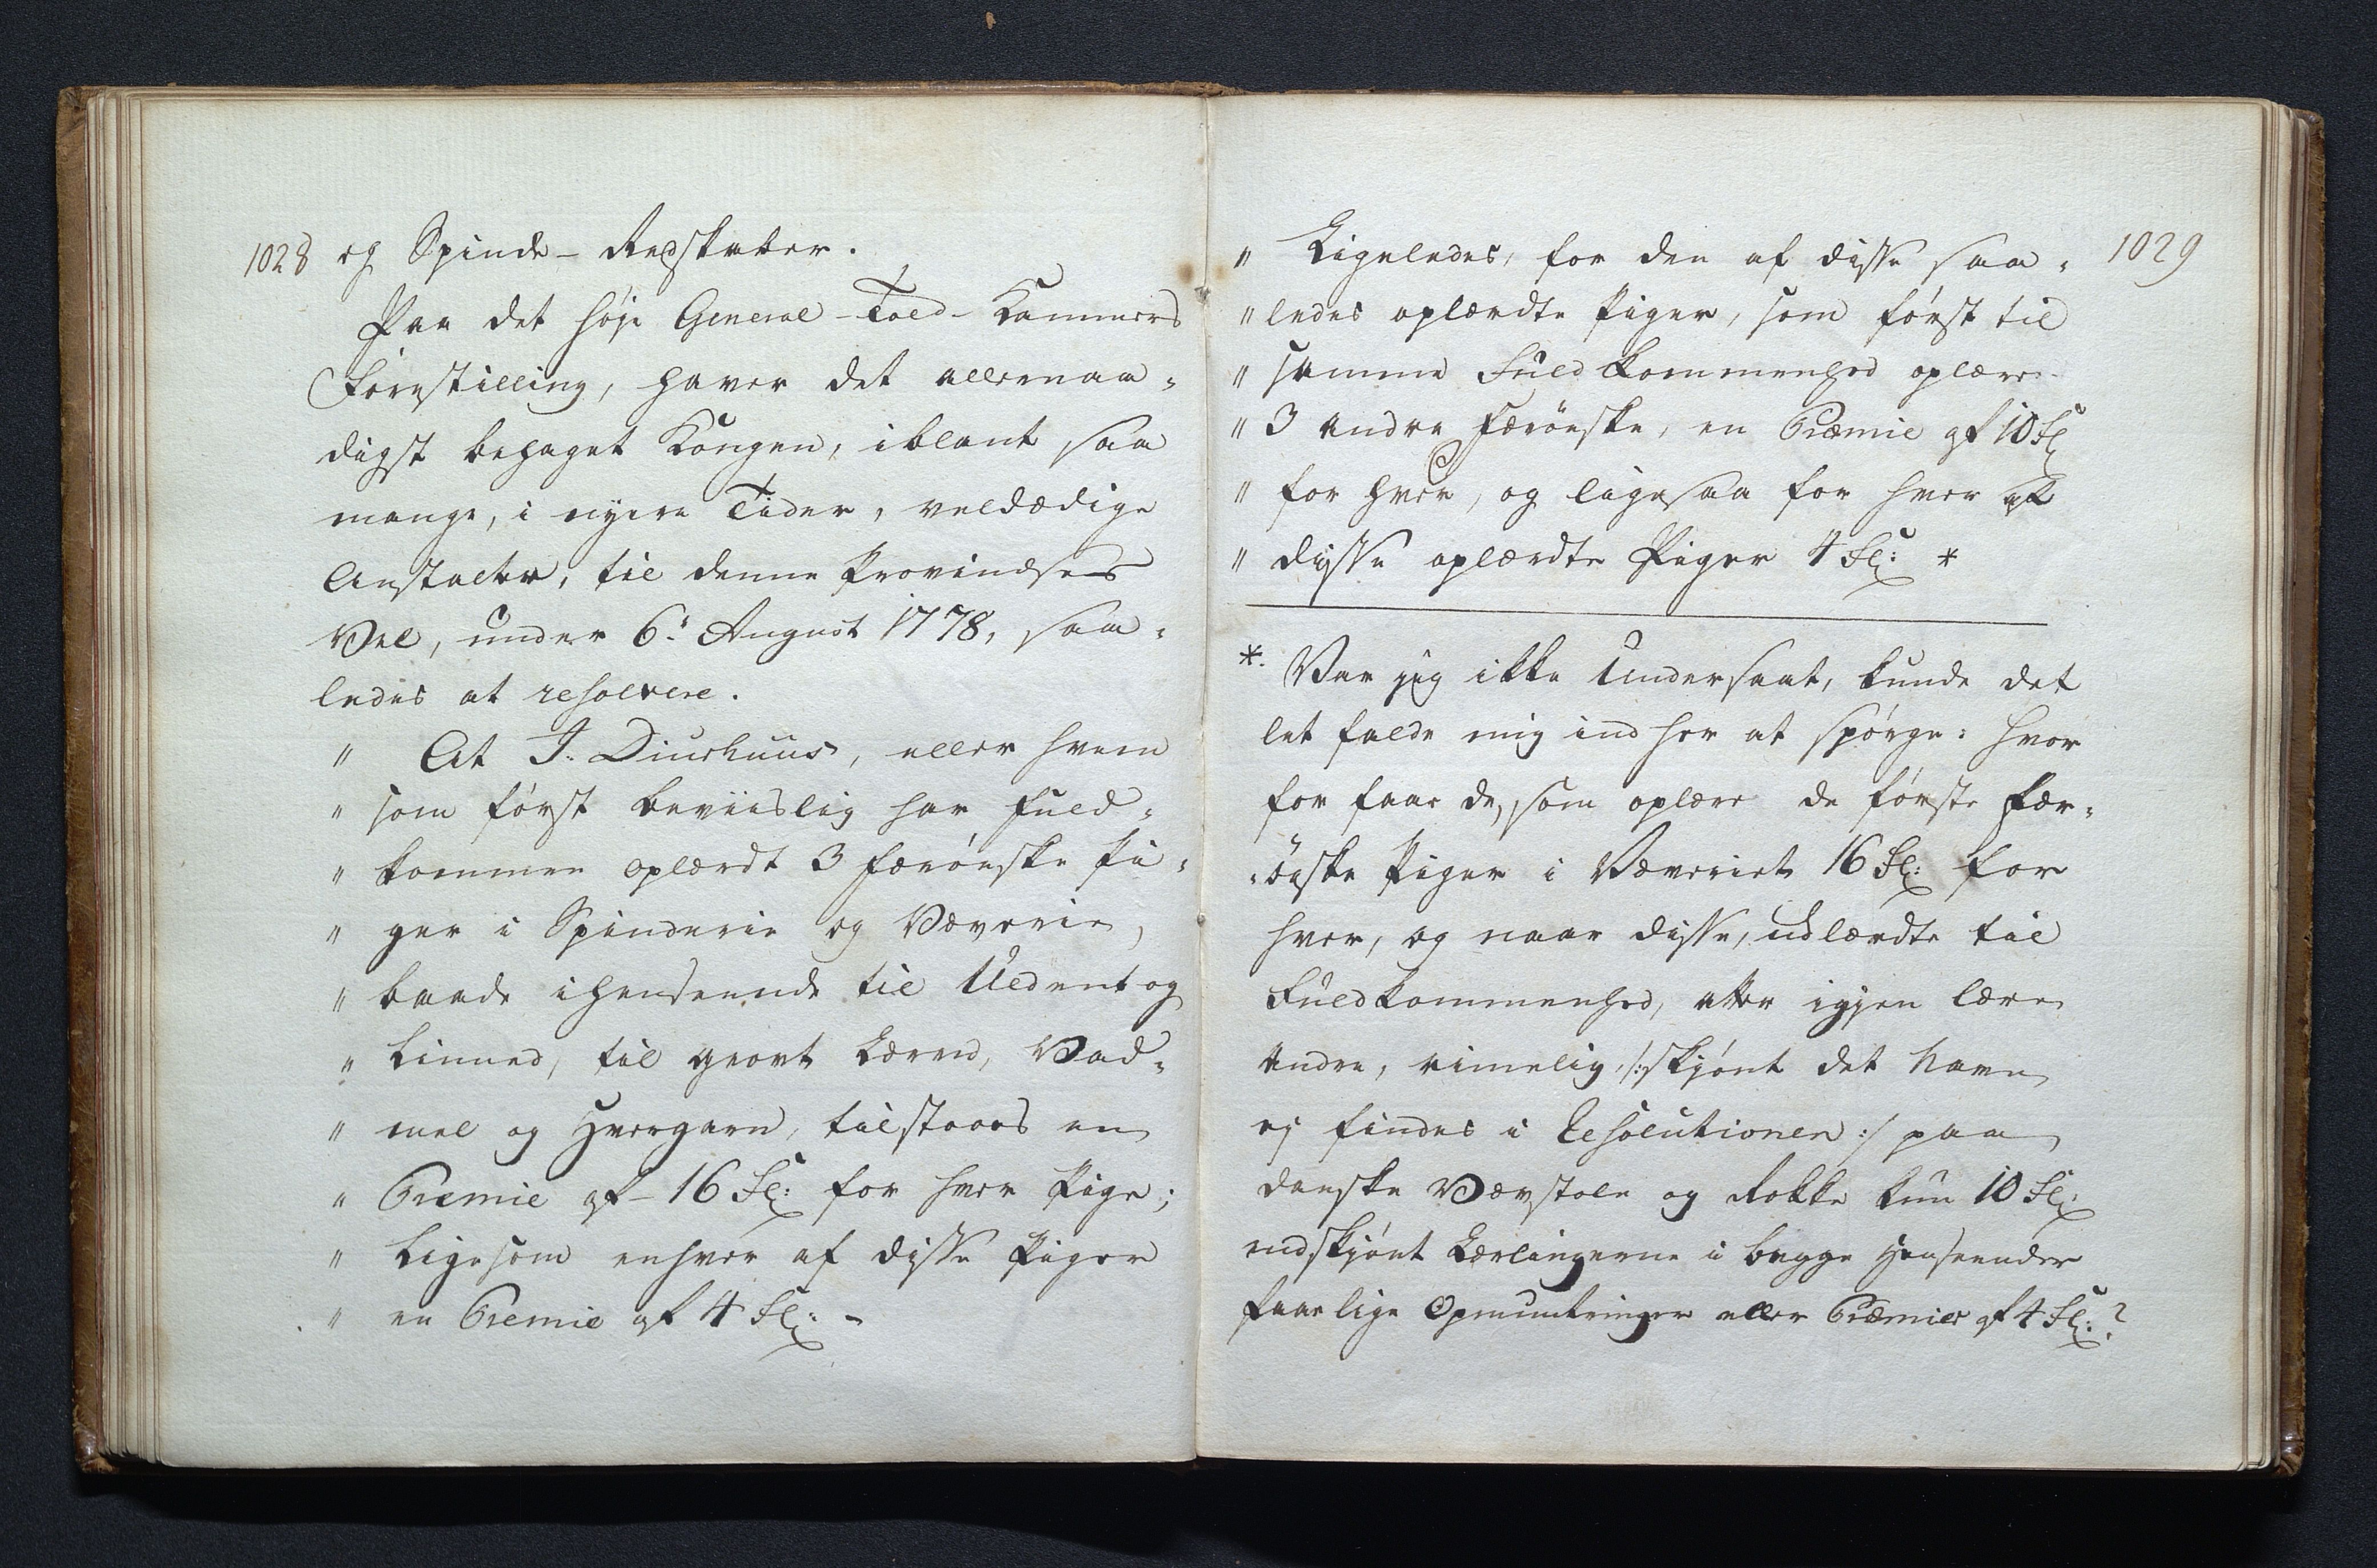 1028 og Spinde-Redskaber.
Paa det høje General-Told-Kammers
Forestilling, haver det allernaa-
digst behaget Kongen, iblant saa
mange, i nyere Tider, veldædige
Anstalter, til denne Provindses
Vel, under 6.te August 1778, saa-
ledes at resolvere.
" At J: Diurhuus, eller hvem
" som først beviislig har fuld-
" kommen oplærdt 3 færøeske Pi-
" ger i Spinderie og Væverie,
" baade ihenseende til Uldent og
" Linned, til groft Lærred, Vad-
" mel og Hvergarn, tilstaaes en
" Premie af 16 Sl: for hver Pige;
" Ligesom enhver af disse Piger
" en Premie af 4 Sl: -
" Ligeledes, for den af disse saa- 1029
" ledes oplærdte Piger, som først til
" samme Fuldkommenhed oplærer
" 3 andre Færøeske, en Præmie af 10 Sl
" for hver, og ligesaa for hver af
" disse oplærdte Piger 4 Sl: *
*. Var jeg ikke Undersaat, kunde det
let falde mig ind her at spørge: hvor
for faar de, som oplære de første Fær-
-øiske Piger i Væveriet 16 Sl: for
hver, og naar disse, udlærdte til
Fuldkommenhed, atter igjen lære
andre, rimelig, /:skjønt det Navn
ej findes i Resolutionen:/ paa
danske Vævstole og Rokke kun 10 Sl:
endskjønt Lærlingerne i begge Henseender
faae lige Opmuntringer eller Præmier af 4 Sl:?